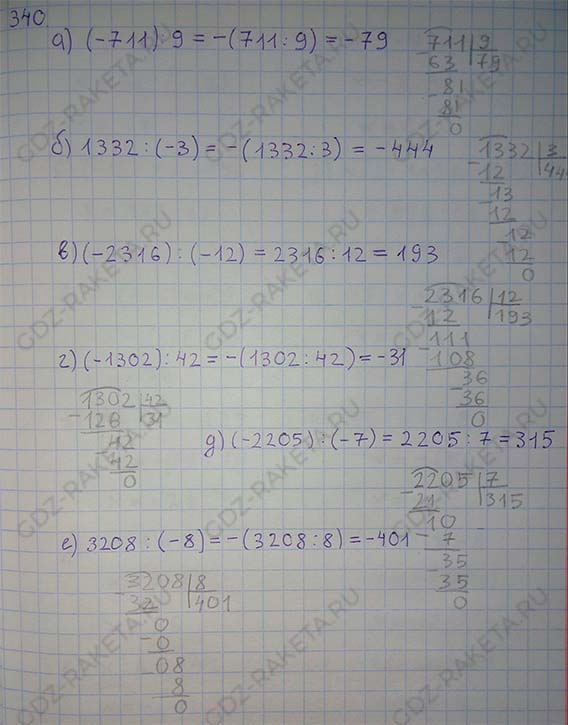 340
а) (-711) : 9 = -(711 : 9) = -79
711 9
63 79
81
81
0
б) 1332 : (-3) = -(1332 : 3) = -444
1332 3
12 444
13
12
12
12
0
в) (-2316) : (-12) = 2316 : 12 = 193
2316 12
12 193
111
108
36
36
0
г) (-1302) : 42 = -(1302 : 42) = -31
1302 42
126 31
42
42
0
д) (-2205) : (-7) = 2205 : 7 = 315
2205 7
21 315
10
7
35
35
0
е) 3208 : (-8) = -(3208 : 8) = -401
3208 8
32 401
0
0
08
8
0
GDZ-RAKETA.RU